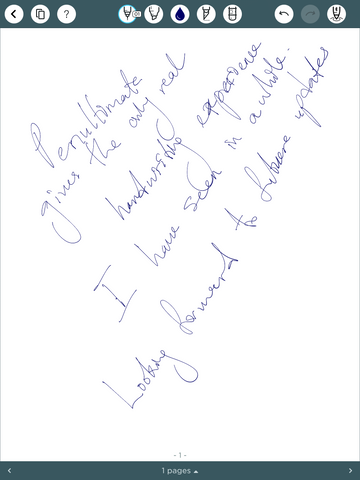 ?
Penultimate
gives the only real
handwriting experience
I have seen in a while.
Looking forward to future updates
- 1 -
1 pages